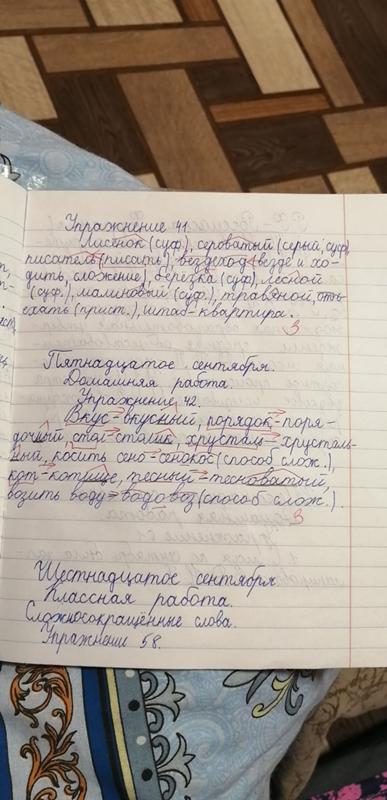 Упражнение 41
Листнок (суф.), сероватый (серый, суф),
писатель (писать), вездеход (везде и хо-
дить, сложение), берёзка (суф), лесной
(суф.), малиновый (суф.), травяной, отъ-
ехать (прист.), штаб-квартира.
3
Пятнадцатое сентября.
Домашняя работа.
Упражнение 42.
Вкус-вкусный, порядок-поря-
дочный, стол-столик, хрусталь-хрусталь-
ный, косить сено-сенокос (способ слож.),
кот-котище, тесный-тесноватый,
возить воду-водовоз (способ слож.).
3
Шестнадцатое сентября.
Классная работа.
Сложносокращённые слова.
Упражнение 58.